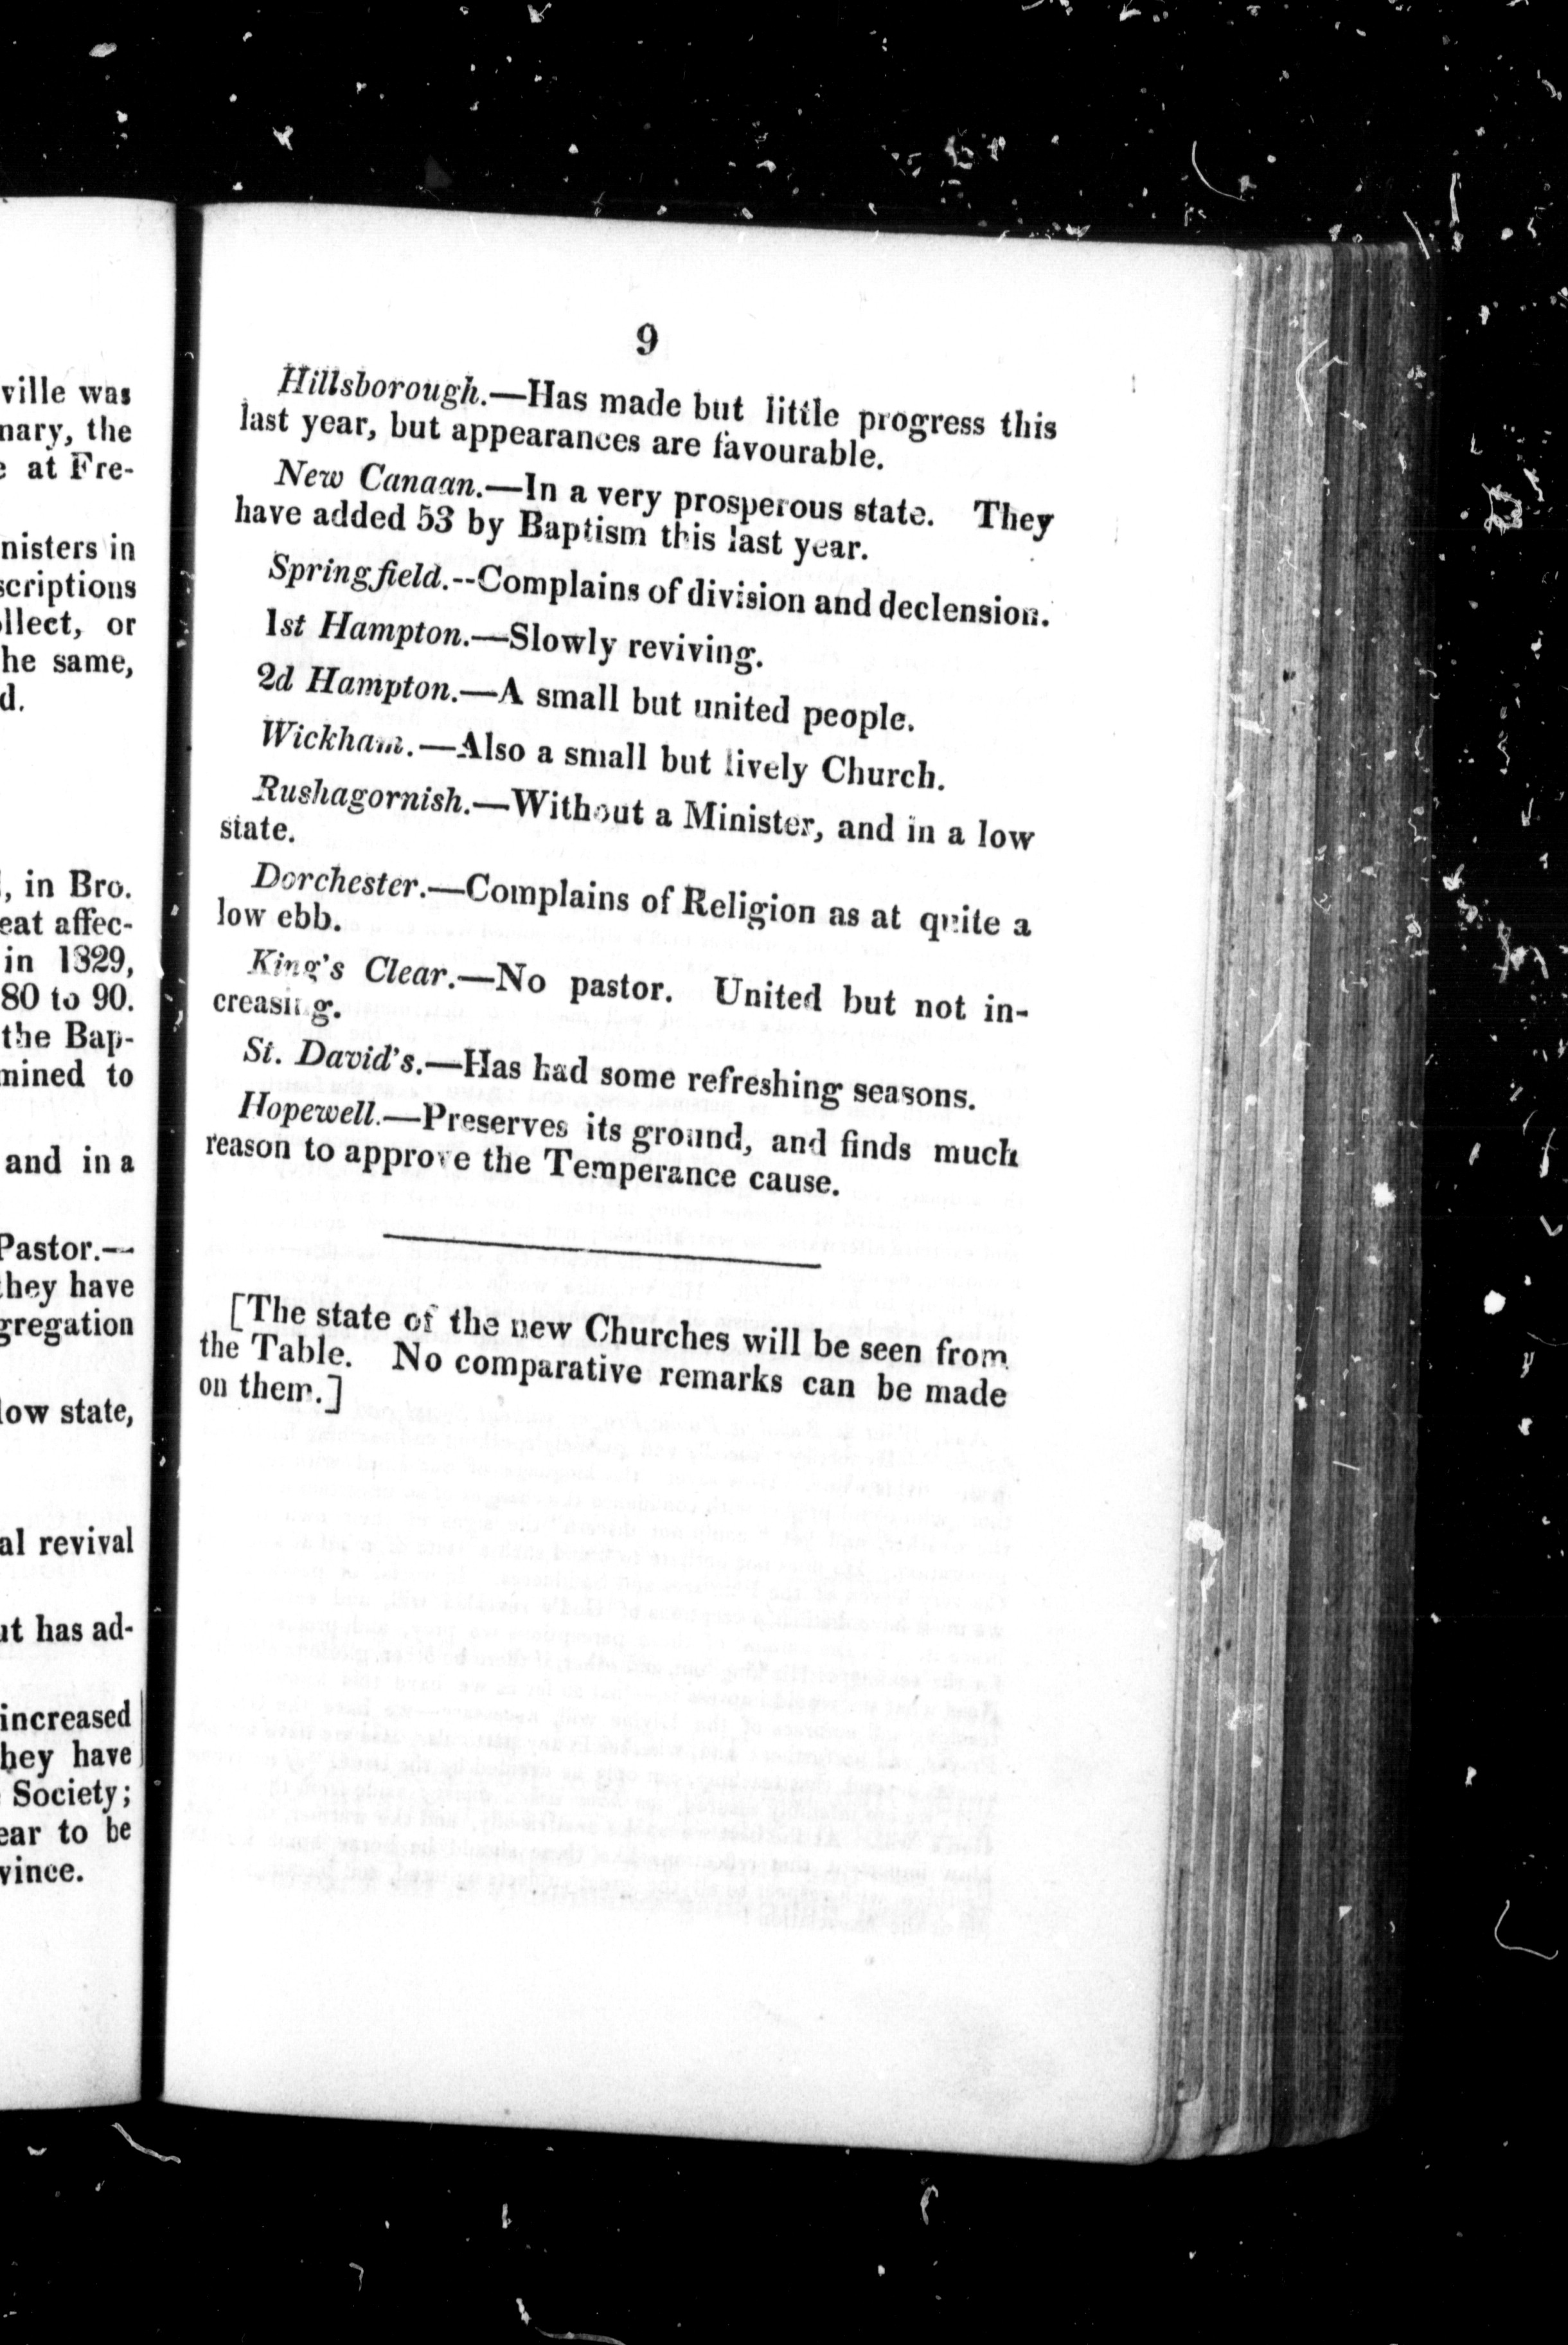 ville was
nary, the
e at Fre-
nisters in
scriptions
ollect, or
he same,
d.
, in Bro.
eat affec-
in 1829,
80 to 90.
the Bap-
mined to
and in a
Pastor.—
they have
gregation
low state,
al revival
ut has ad-
increased
they have
Society;
ear to be
vince.
9
Hillsborough.—Has made but little progress this
last year, but appearances are favourable.
New Canaan.—In a very prosperous state. They
have added 53 by Baptism this last year.
Springfield.--Complains of division and declension.
1st Hampton.—Slowly reviving.
2d Hampton.—A small but united people.
Wickham.—Also a small but lively Church.
Rushagornish.—Without a Minister, and in a low
state.
Dorchester.—Complains of Religion as at quite a
low ebb.
King's Clear.—No pastor. United but not in-
creasing.
St. David's.—Has had some refreshing seasons.
Hopewell.—Preserves its ground, and finds much
reason to approve the Temperance cause.
[The state of the new Churches will be seen from
the Table. No comparative remarks can be made
on them.]